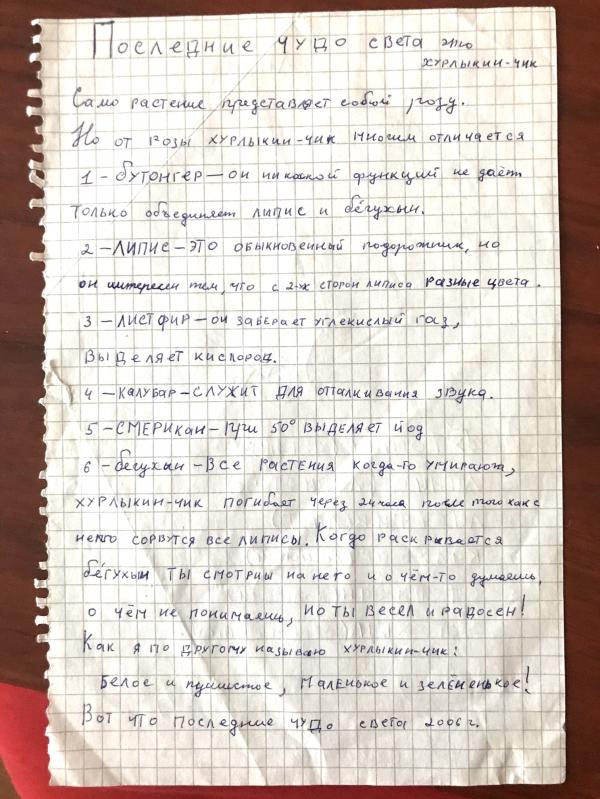 Последние чудо света это
хурлыкин-чик
Само растение представляет собой розу.
Но от розы хурлыкин-чик многим отличается
1 – бутонгер – он никакой функций не даёт
только объединяет липис и бе́гухын.
2 – липис – это обыкновенный подорожник, но
он интересен тем, что с 2-х сторон липиса разные цвета.
3 – листфир – он заберает углекислый газ,
выделяет кислород.
4 – калубар – служит для отталкивания звука.
5 – смерикан – при 50° выделяет йод
6 – бегухын – все растения когда-то умирают,
хурлыкин-чик погибает через 24 часа после того как с
него сорвутся все липисы. Когдо раскрывается
бе́гухын ты смотриш на него и о чём-то думаешь,
о чём не понимаешь, но ты весел и радосен!
Как я по другому называю хурлыкин-чик:
Белое и пушистое, маленькое и зелёненькое!
Вот что последние чудо света 2006 г.